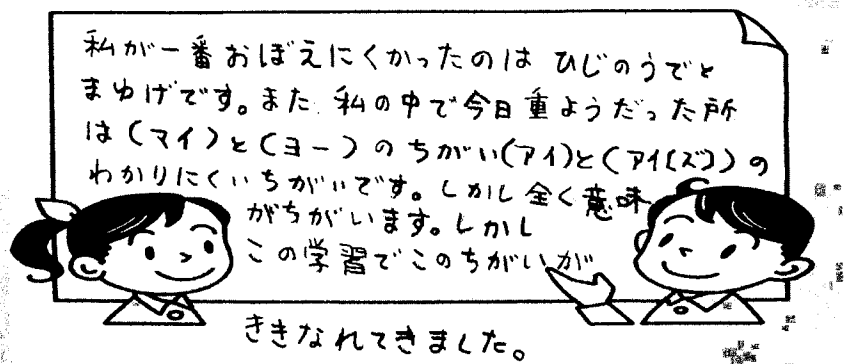 私が一番おぼえにくかったのは ひじのうでと
まゆげです。また 私の中で今日重ようだった所
は(マイ)と(ヨー)のちがい(アイ)と(アイ(ズ))の
わかりにくいちがいです。しかし全く意味
がちがいます。しかし
この学習でこのちがいが
ききなれてきました。